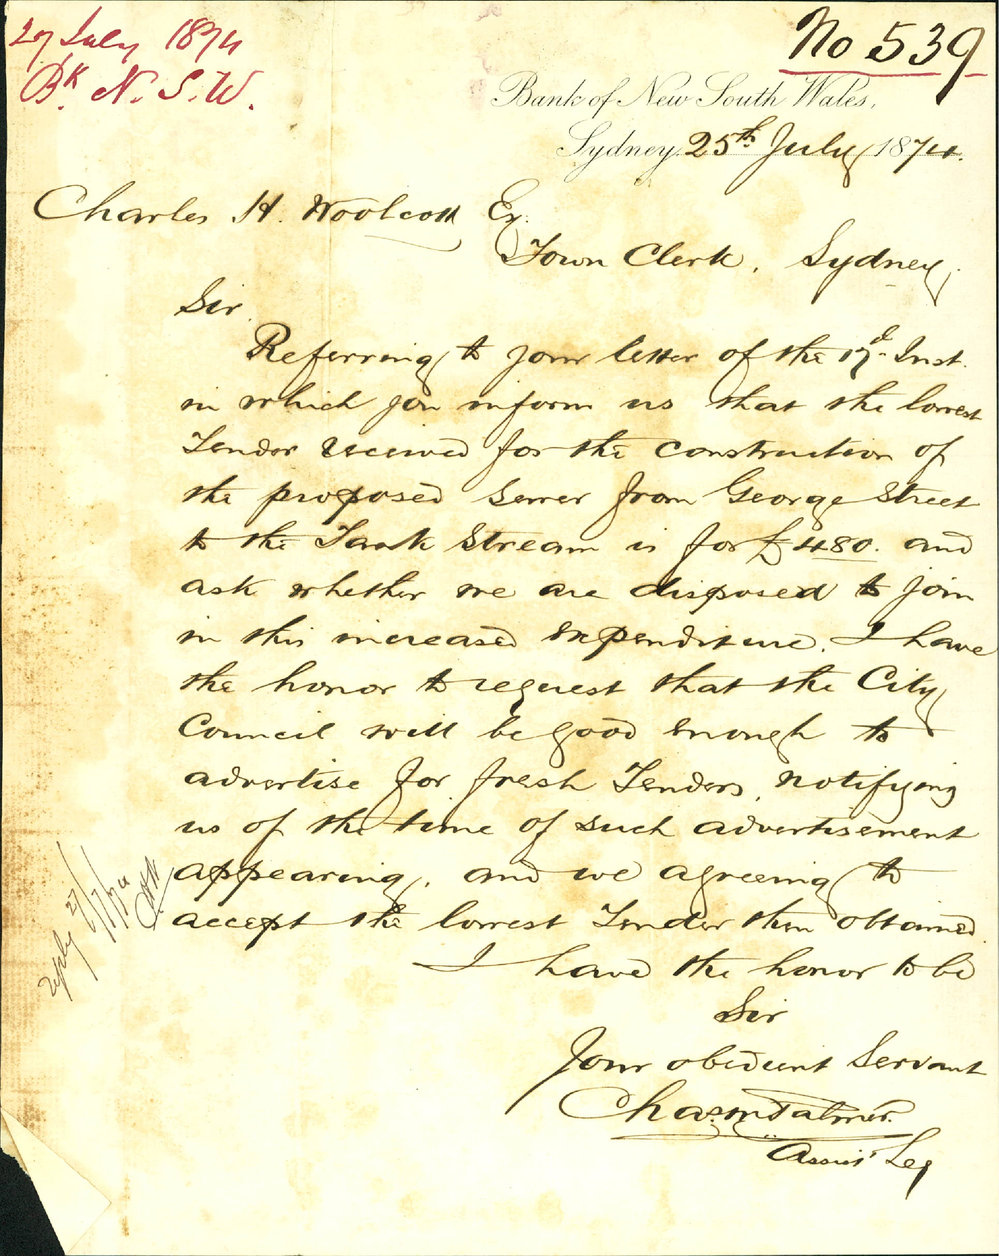 27 July 1874
Bk. N. S. W.
No 539
Bank of New South Wales,
Sydney. 25th July 1874.
Charles H. Woolcott Esq.
Town Clerk, Sydney.
Sir.
Referring to your letter of the 17th Inst.
in which you inform us that the lowest
Tender received for the construction of
the proposed Sewer from George Street
to the Tank Stream is for £480. and
ask whether we are disposed to join
in this increased expenditure. I have
the honor to request that the City
Council will be good enough to
advertise for fresh Tenders, notifying
us of the time of such advertisement
appearing, and we agreeing to
accept the lowest Tender then obtained.
I have the honor to be
Sir
Your obedient Servant
Chas. M Palmer.
Assist Sec
reply 27/7/74
CHW